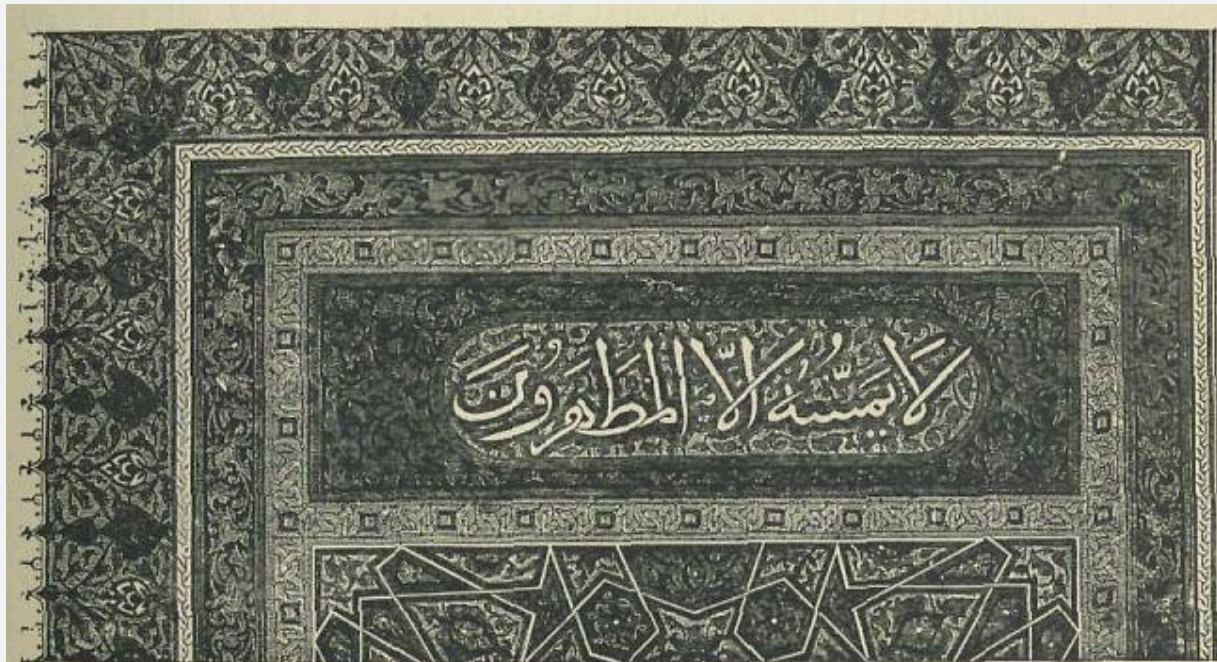 لَا يَمَسُّهُ الَّا الْمُطَهَّرُونَ